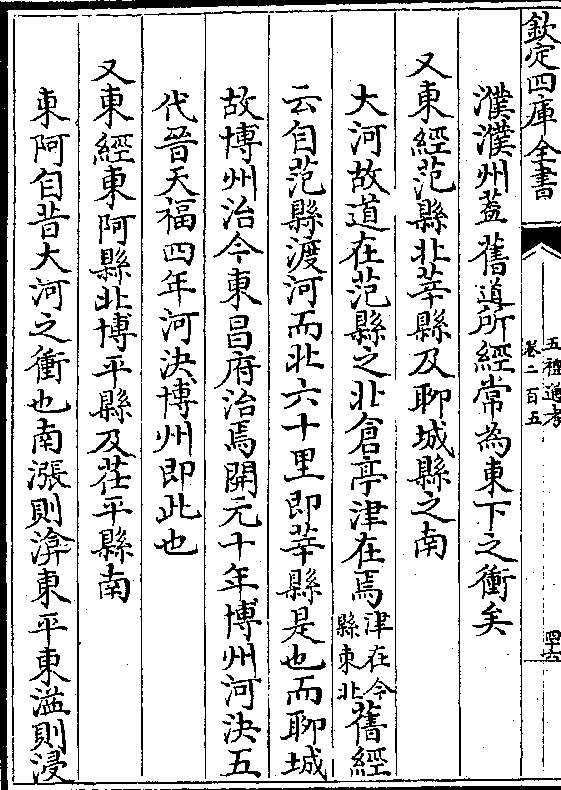 欽定四庫全書
五禮通考
卷二百五
四十六
濮濮州葢舊道所經常為東下之衝矣
又東經范縣北莘縣及聊城縣之南
大河故道在范縣之北倉亭津在焉津在今縣東北舊經
云自范縣渡河而北六十里即莘縣是也而聊城
故博州治今東昌府治焉開元十年博州河決五
代晉天福四年河決博州即此也
又東經東阿縣北博平縣及茌平縣南
東阿自昔大河之衝也南漲則渰東平東溢則浸